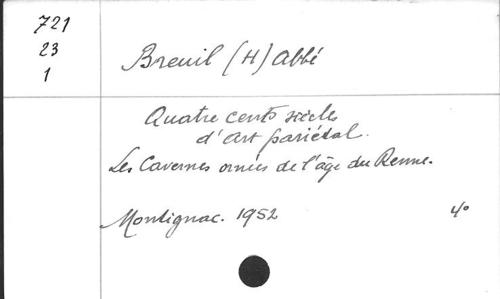 721
23
1
Breuil (H) Abbé
Quatre cents siècles
d'art pariétal.
Les Cavernes ornées de l'âge du Renne.
Montignac. 1952
4°